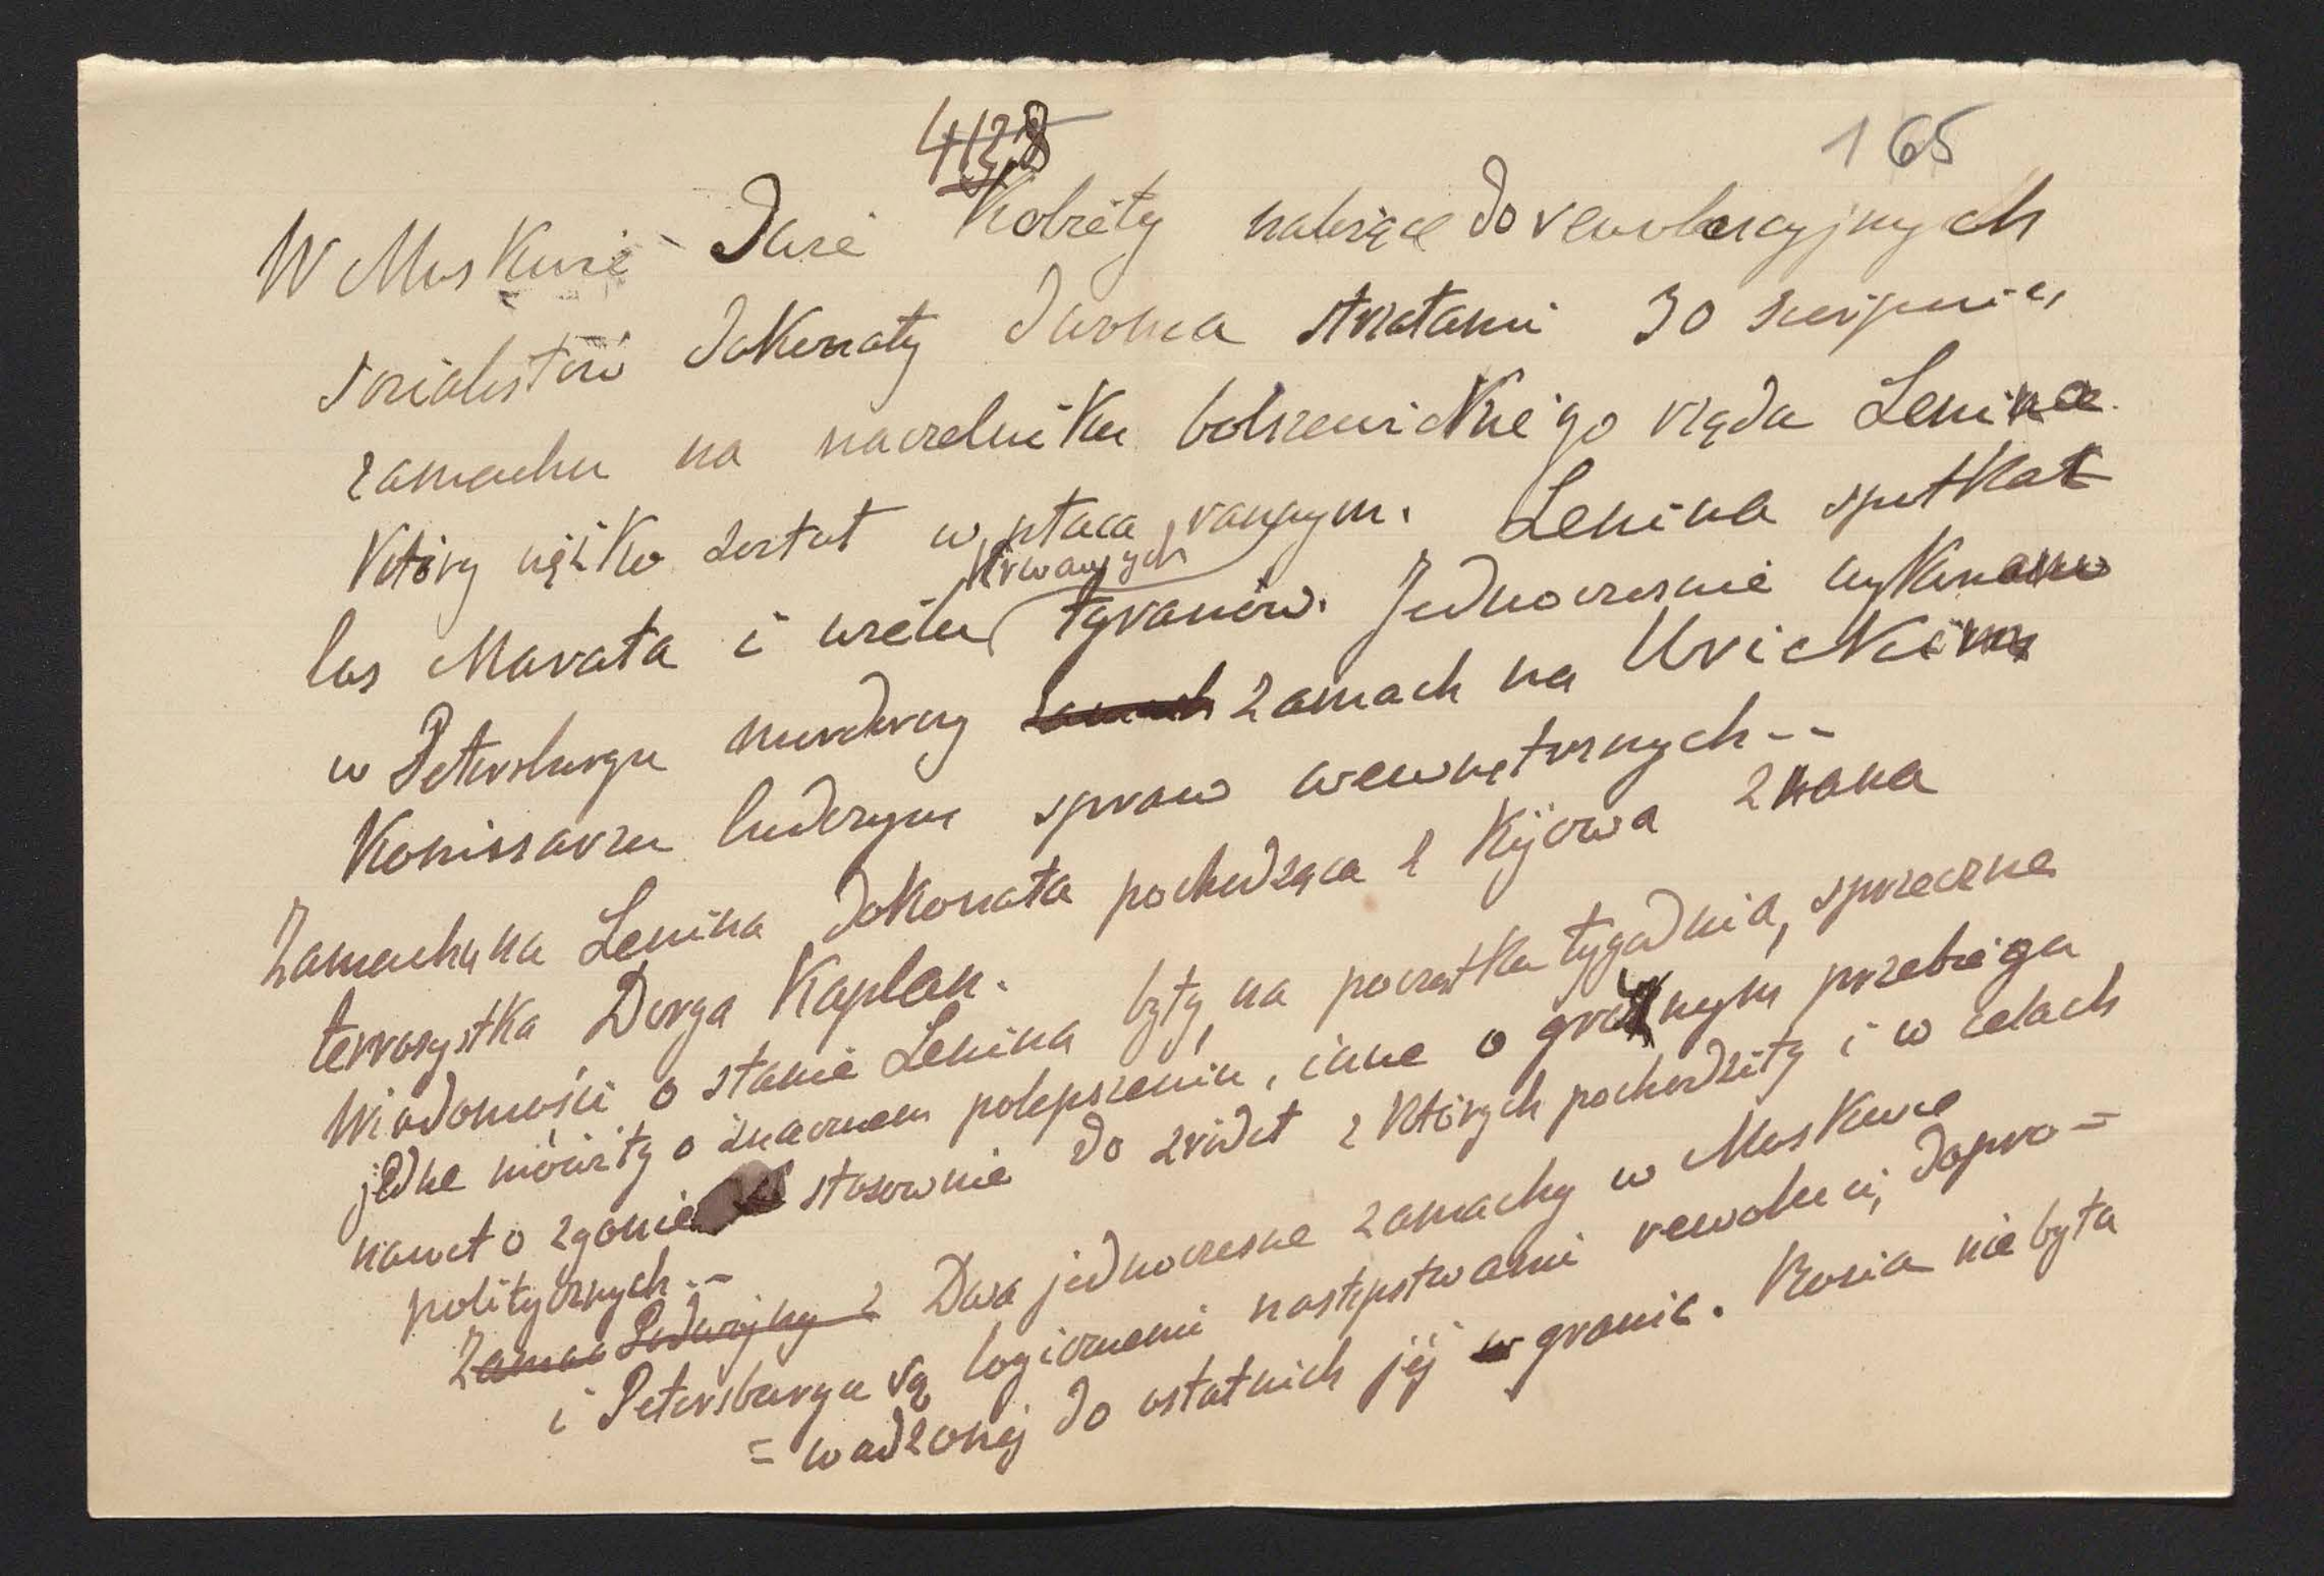 4128
165
W Moskwie Dwie Kobiety należące do rewolucyjnych
socialistów dokonały dwoma strzałami 30 sierpnia
zamachu na naczelniku bolszewickiego rządu Lenina.
który ciężko został w płuca rannym. Lenina spotkał
krwawych
los Marata i wielu tyranów. Jednocześnie wykonano
w Petersburgu morderczy zamach na Urickim
Komissarzu ludowym spraw wewnętrznych--
Zamachu na Lenina dokonała pochodząca z Kijowa znana
terrorystka Dorga Kaplan.
Wiadomości o stanie Lenina były, na początku tygodnia, sprzeczne
jedne mówiły o znacznem polepszeniu, inne o groźnym przebiegu
nawet o zgonie stosownie do źródeł z których pochodziły i w celach
politycznych.--
Zamac Podwójny 2 Dwa jednoczesne zamachy w Moskwie
i Petersburgu są logicznemi następstwami rewolucii, dopro=
=wadzonej do ostatnich jej granic. Rosia nie była